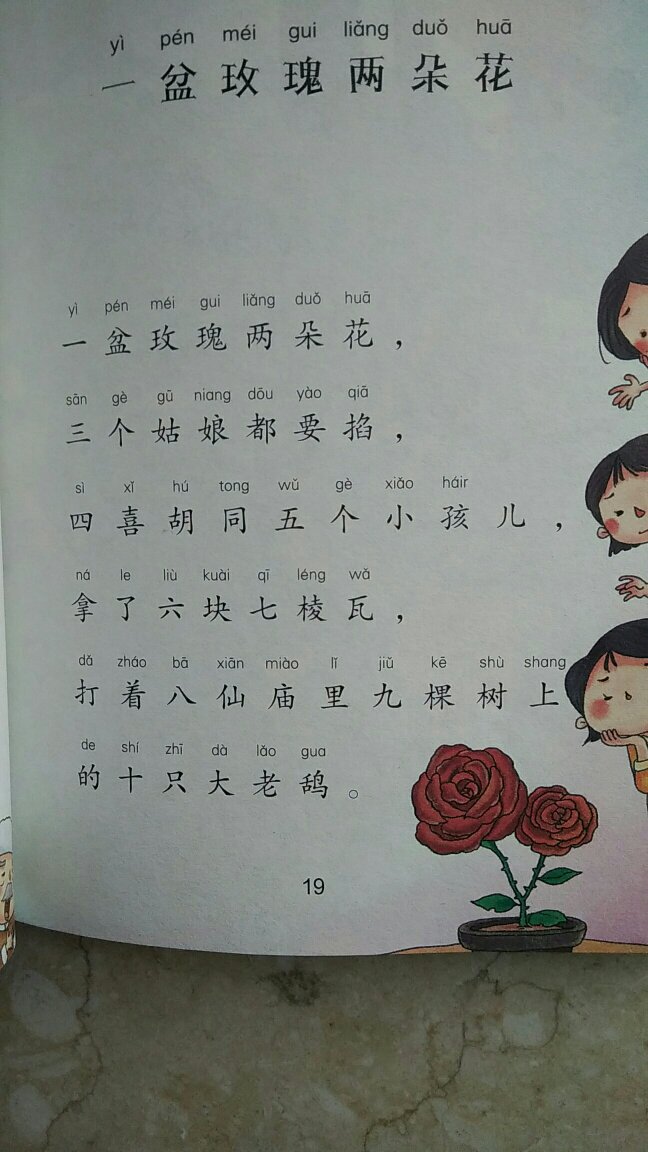 yì pén méi gui liǎng duǒ huā
一盆玫瑰两朵花
yì pén méi gui liǎng duǒ huā
一盆玫瑰两朵花，
sān gè gū niang dōu yào qiā
三个姑娘都要掐，
sì xǐ hú tong wǔ gè xiǎo háir
四喜胡同五个小孩儿，
ná le liù kuài qī léng wǎ
拿了六块七棱瓦，
dǎ zháo bā xiān miào lǐ jiǔ kē shù shang
打着八仙庙里九棵树上
de shí zhī dà lǎo gua
的十只大老鸹。
19